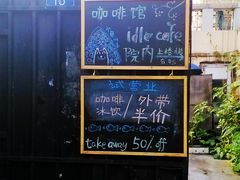 咖啡馆
idle cafe
院内
试营业
咖啡 / 外带
冰饮 / 半价
take away 50% off